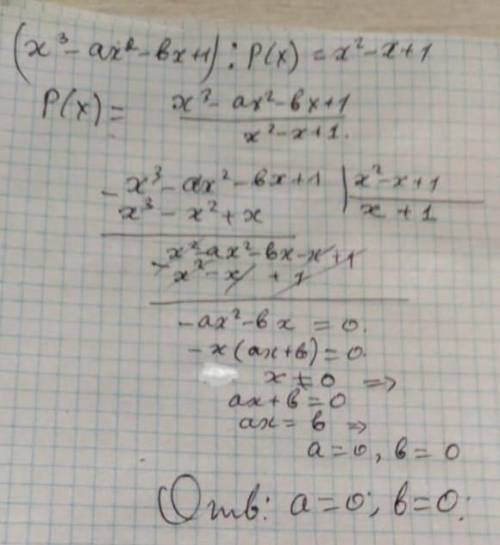 (x³ - ax² - bx + 1) : P(x) = x² - x + 1
P(x) = x³ - ax² - bx + 1
x² - x + 1.
- x³ - ax² - bx + 1 | x² - x + 1
x³ - x² + x | x + 1
x² - ax² - bx - x + 1
- x² - x + 1
- ax² - bx = 0.
- x(ax + b) = 0.
x ≠ 0 =>
ax + b = 0
ax = b =>
a = 0, b = 0
Отв: a = 0; b = 0;